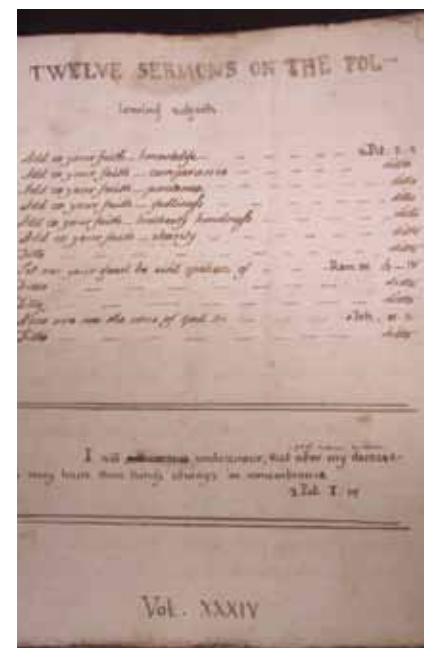 TWELVE SERMONS ON THE FOL-
lowing subjects
Add to your faith knowledge 2 Pet. I. 5
Add to your faith temperance ditto
Add to your faith patience ditto
Add to your faith godliness ditto
Add to your faith brotherly kindness ditto
Add to your faith charity ditto
Ditto ditto
Let not your good be evil spoken of Rom.
Ditto ditto
Ditto ditto
Now are we the sons of God 1 Joh.
Ditto ditto
I will endeavour, that after my decease
may have these things always in remembrance
2 Pet. I. 15
Vol. XXXIV